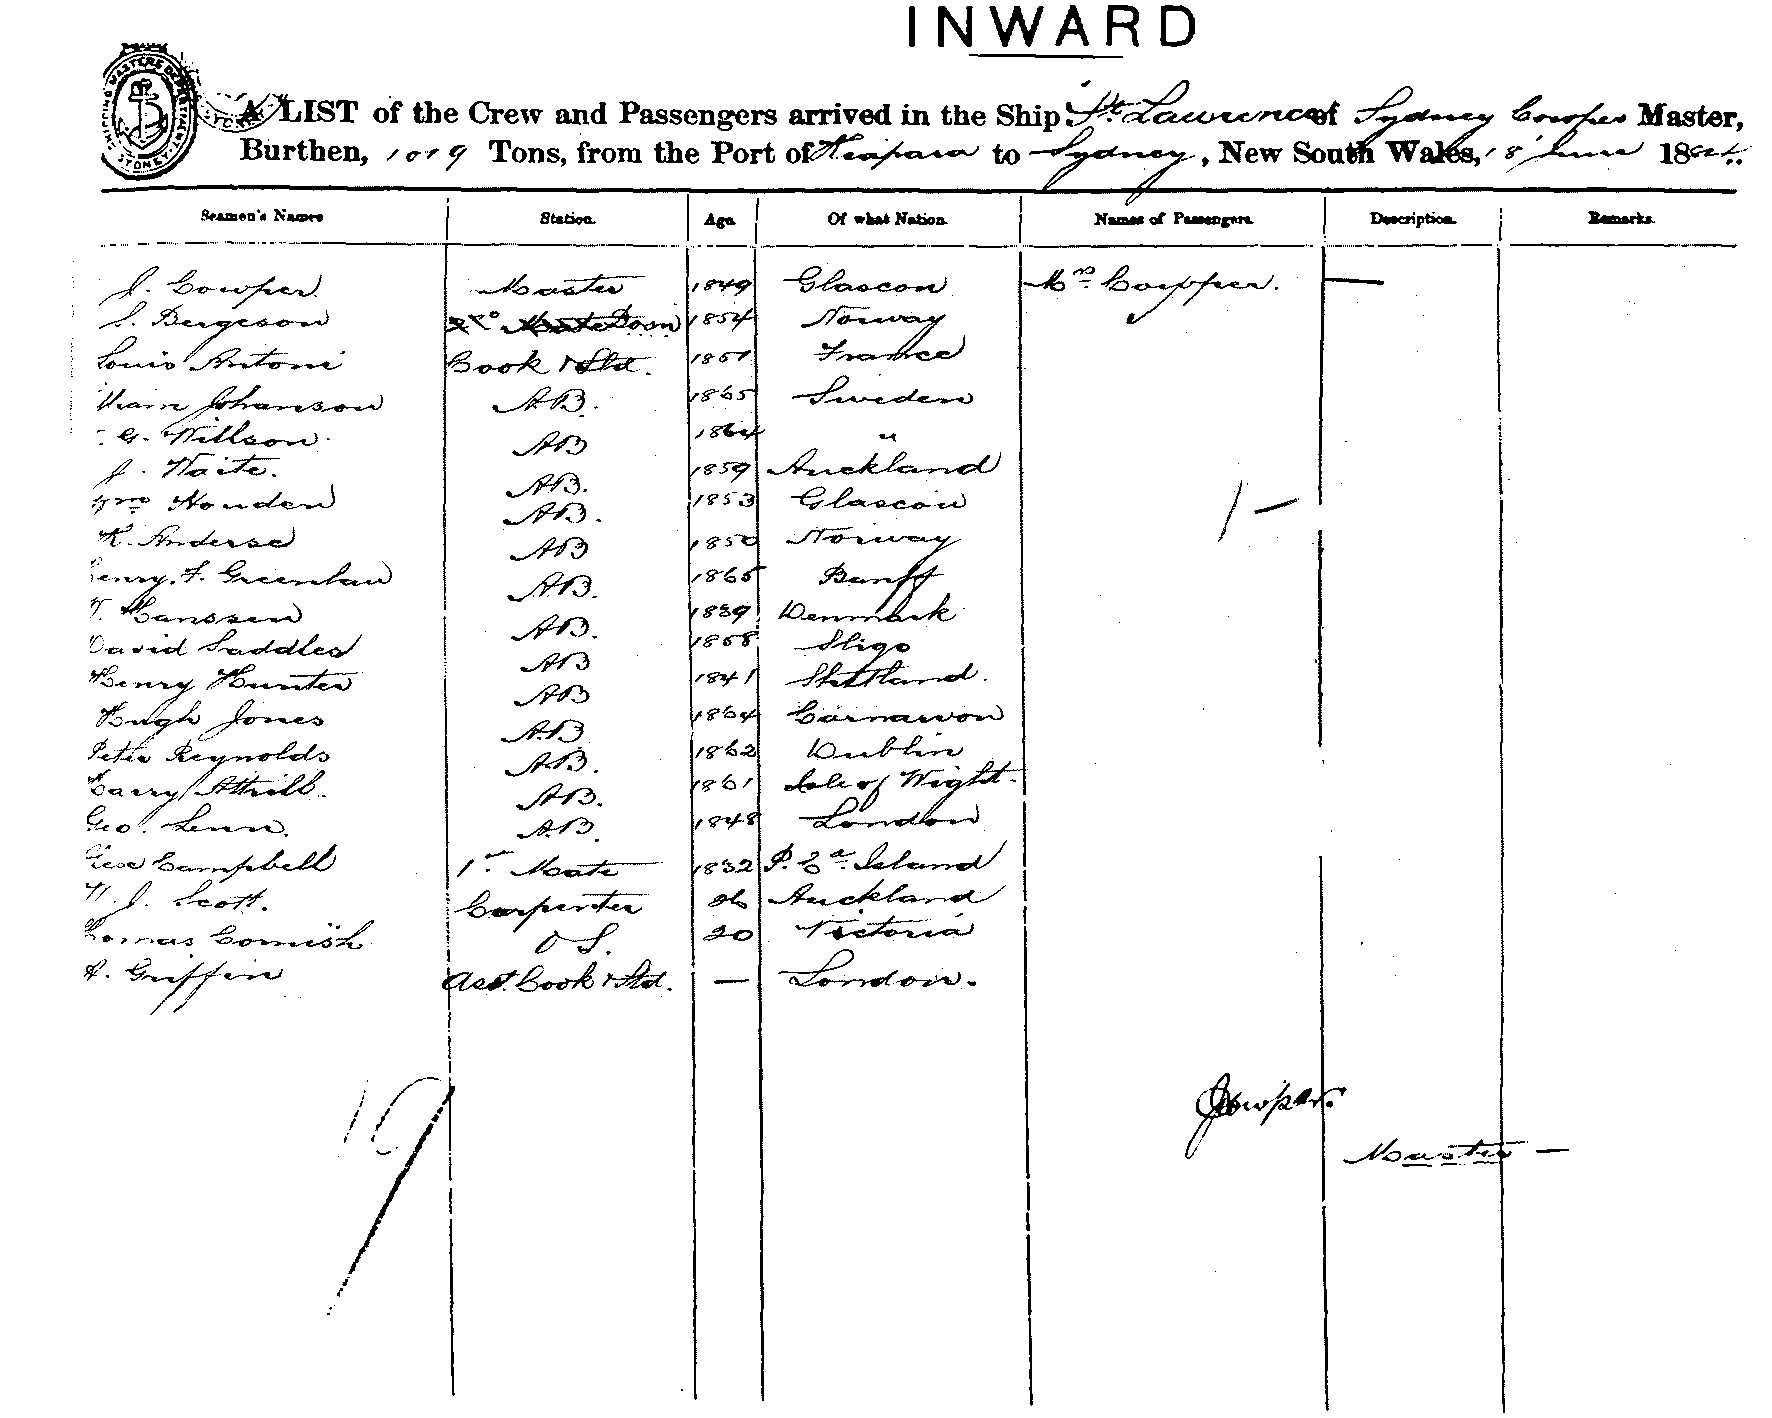 INWARD
A LIST of the Crew and Passengers arrived in the Ship St Lawrence of Sydney Cowper Master,
Burthen, 1019 Tons, from the Port of to Sydney, New South Wales, 18 June 1884.
Seamen's Names Station. Age. Of what Nation. Names of Passengers. Description. Remarks.
J. Cowper. Master 1849 Glascow Mrs. Cowper. —
S. Bergeson 1854 Norway
Louis Antoni Cook & Std. 1851 France
Johanson A.B. 1865 Sweden
G. Willson. AB 1864 "
J. Waite. AB. 1859 Auckland
Wm Houden AB. 1853 Glascow 1 —
K. Anderse AB 1850 Norway
Henry. F. Greenlaw AB. 1865 Banff
Hanssen AB. 1839 Denmark
David Saddler AB 1858 Sligo
Henry Hunter AB 1841 Shetland.
Hugh Jones AB 1864 Carnarvon
Peter Reynolds AB. 1862 Dublin
Harry Attrill. AB. 1861 Isle of Wight.
Geo. Lenn. A.B. 1848 London
Campbell 1st Mate 1832 P. Ed. Island
J. Scott. Carpenter 26 Auckland
Thomas Cornish O S. 20 Victoria
A. Griffin Asst. Cook & Std. — London.
19
JCowper.
Master —